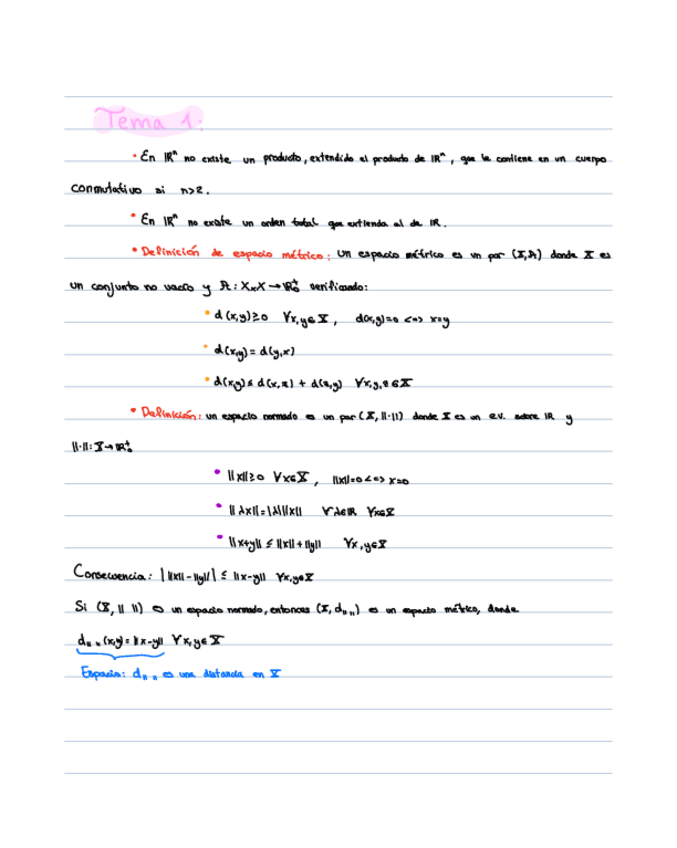 Tema 1:
• En ℝⁿ no existe un producto, extendido el producto de ℝⁿ, que le contiene en un cuerpo
conmutativo si n>2.
• En ℝⁿ no existe un orden total que extienda al de ℝ.
• Definición de espacio métrico: un espacio métrico es un par (X,d) donde X es
un conjunto no vacío y d: X×X→ℝ₀⁺ verificando:
• d(x,y)≥0 ∀x,y∈X, d(x,y)=0 <=> x=y
• d(x,y)=d(y,x)
• d(x,y)≤d(x,z)+d(z,y) ∀x,y,z∈X
• Definición: un espacio normado es un par (X,||·||) donde X es un e.v. sobre ℝ y
||·||: X→ℝ₀⁺
• ||x||≥0 ∀x∈X, ||x||=0 <=> x=0
• ||λx||=|λ|||x|| ∀λ∈ℝ ∀x∈X
• ||x+y|| ≤ ||x||+||y|| ∀x,y∈X
Consecuencia: | ||x||-||y|| | ≤ ||x-y|| ∀x,y∈X
Si (X,|| ||) es un espacio normado, entonces (X,d|| ||) es un espacio métrico, donde
d|| ||(x,y)=||x-y|| ∀x,y∈X
Espacio: d|| || es una distancia en X